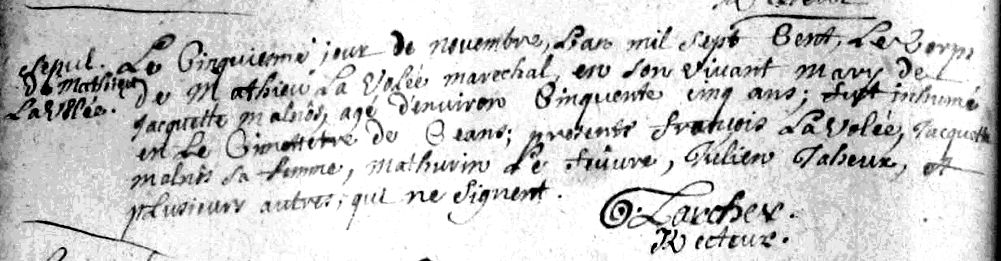 Sepul.
de Mathieu
La Volée.
Le Cinquieme jour de novembre, L'an mil sept Cent, Le Corps
de Mathieu La Volée marechal, en son vivant mary de
Jacquette malnös, agé d'environ Cinquente cinq ans; fut inhumé
en Le Cimettere de Ceans; presents françois La Volée, Jacquette
malnös sa femme, Mathurin Le fèuvre, Julien Taheux, et
plusieurs autres, qui ne signent.
Larcher.
Recteur.